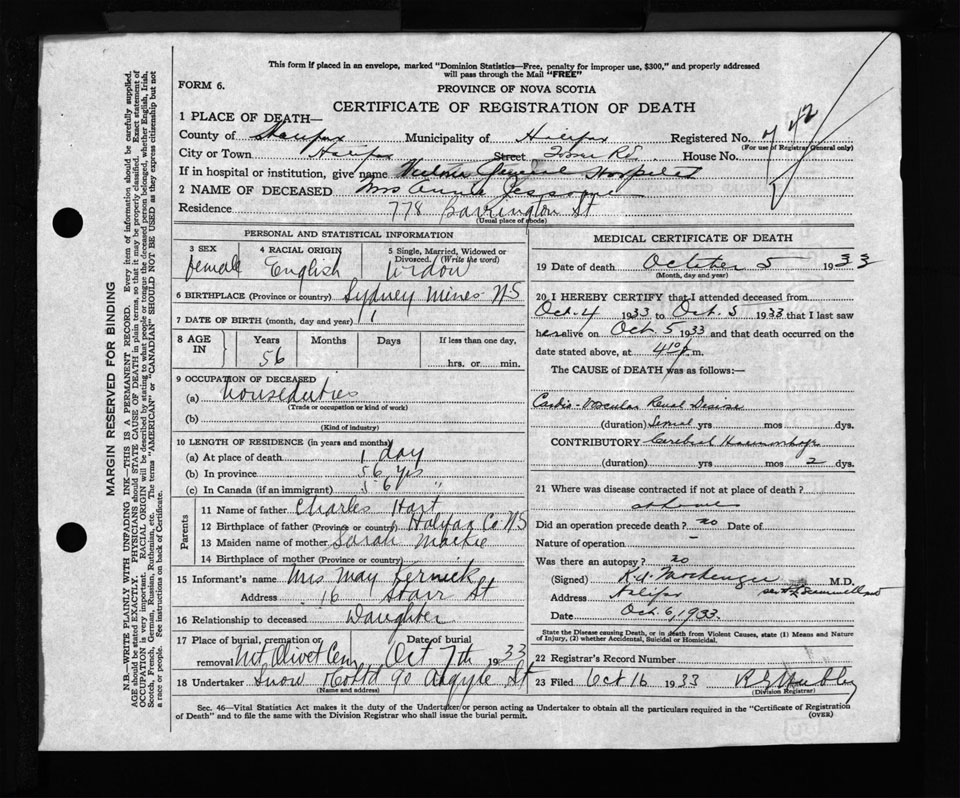 This form if placed in an envelope, marked "Dominion Statistics—Free, penalty for improper use, $300," and properly addressed
will pass through the Mail "FREE"
FORM 6.
PROVINCE OF NOVA SCOTIA
CERTIFICATE OF REGISTRATION OF DEATH
1 PLACE OF DEATH—
County of Halifax Municipality of Halifax Registered No. 742
(For use of Registrar General only)
City or Town Halifax Street Tower Rd House No.
If in hospital or institution, give name Victoria General Hospital
2 NAME OF DECEASED Mrs Annie Jessome
Residence 778 Barrington St
(Usual place of abode)
PERSONAL AND STATISTICAL INFORMATION
3 SEX 4 RACIAL ORIGIN 5 Single, Married, Widowed or
Divorced. (Write the word)
female English widow
6 BIRTHPLACE (Province or country) Sydney Mines NS
7 DATE OF BIRTH (month, day and year)
8 AGE IN Years Months Days If less than one day,
56 hrs. or min.
9 OCCUPATION OF DECEASED
(a) houseduties
(Trade or occupation or kind of work)
(b)
(Kind of industry)
10 LENGTH OF RESIDENCE (in years and months)
(a) At place of death 1 day
(b) In province 56 yrs
(c) In Canada (if an immigrant) 56 "
Parents
11 Name of father Charles Hart
12 Birthplace of father (Province or country) Halifax Co NS
13 Maiden name of mother Sarah Mackie
14 Birthplace of mother (Province or country)
15 Informant's name Mrs May
Address 16 Starr St
16 Relationship to deceased Daughter
17 Place of burial, cremation or Date of burial
removal Mt Olivet Cem Oct 7th 1933
18 Undertaker Snow & Co Ltd 90 Argyle St
(Name and address)
MEDICAL CERTIFICATE OF DEATH
19 Date of death October 5 1933
(Month, day and year)
20 I HEREBY CERTIFY that I attended deceased from
Oct. 4 1933 to Oct. 5 1933 that I last saw
her alive on Oct. 5 1933 and that death occurred on the
date stated above, at 4 10 p.m.
The CAUSE of DEATH was as follows:—
Cardio-Vascular Renal Disease
(duration) Several yrs. mos dys.
CONTRIBUTORY Cerebral Haemorrhage
(duration) yrs mos 2 dys.
21 Where was disease contracted if not at place of death?
at home
Did an operation precede death? no Date of
Nature of operation —
Was there an autopsy? no
(Signed) K. A. MacKenzie M.D.
Address Halifax
Date Oct. 6, 1933.
State the Disease causing Death, or in death from Violent Causes, state (1) Means and Nature
of Injury, (2) whether Accidental, Suicidal or Homicidal.
22 Registrar's Record Number
23 Filed Oct 16 1933
(Division Registrar)
Sec. 46—Vital Statistics Act makes it the duty of the Undertaker or person acting as Undertaker to obtain all the particulars required in the "Certificate of Registration
of Death" and to file the same with the Division Registrar who shall issue the burial permit. (OVER)
MARGIN RESERVED FOR BINDING
N.B.—WRITE PLAINLY WITH UNFADING INK—THIS IS A PERMANENT RECORD. Every item of information should be carefully supplied.
AGE should be stated EXACTLY. PHYSICIANS should STATE CAUSE OF DEATH in plain terms, so that it may be properly classified. Exact statement of
OCCUPATION is very important. RACIAL ORIGIN will be described by stating to what people or tongue the deceased person belonged, whether English, Irish,
Scotch, French, German, Russian, Ruthenian, etc. The terms "AMERICAN" or "CANADIAN" SHOULD NOT BE USED as they express citizenship but not
a race or people. See instructions on back of Certificate.